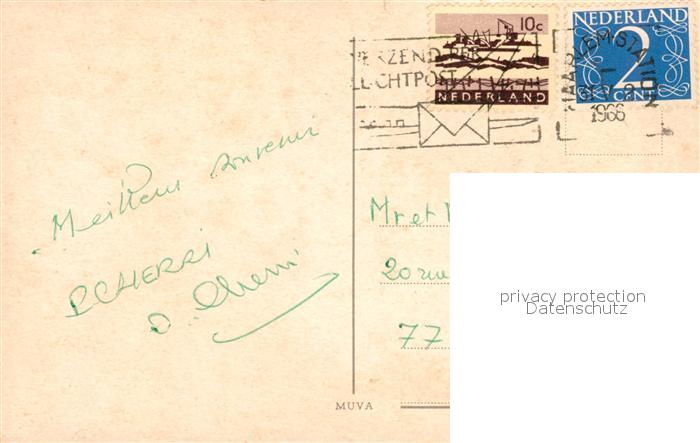 10c
NEDERLAND
NEDERLAND
2
CENT
VERZEND PER
LUCHTPOST
HAARLEM STATION
1966
Meilleur souvenir
PCHERRI
Mr et M
20 rue
77
MUVA
privacy protection
Datenschutz